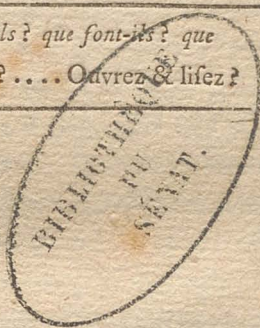 ls ? que font-ils ? que
? .... Ouvrez & lisez ?
BIBLIOTHÈQUE
DU
SÉNAT.